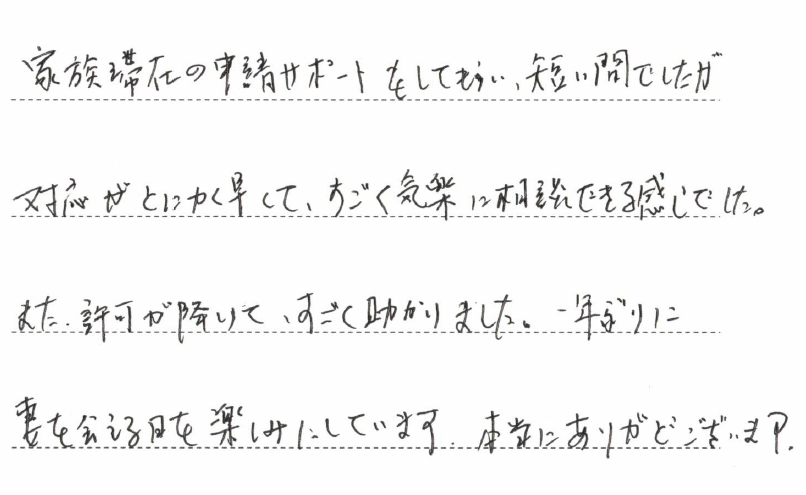 家族滞在の申請サポートをしてもらい、短い間でしたが
対応がとにかく早くて、すごく気楽に相談できる感じでした。
また、許可が降りて、すごく助かりました。一年ぶりに
妻を会える日を楽しみにしています。本当にありがとうございます。